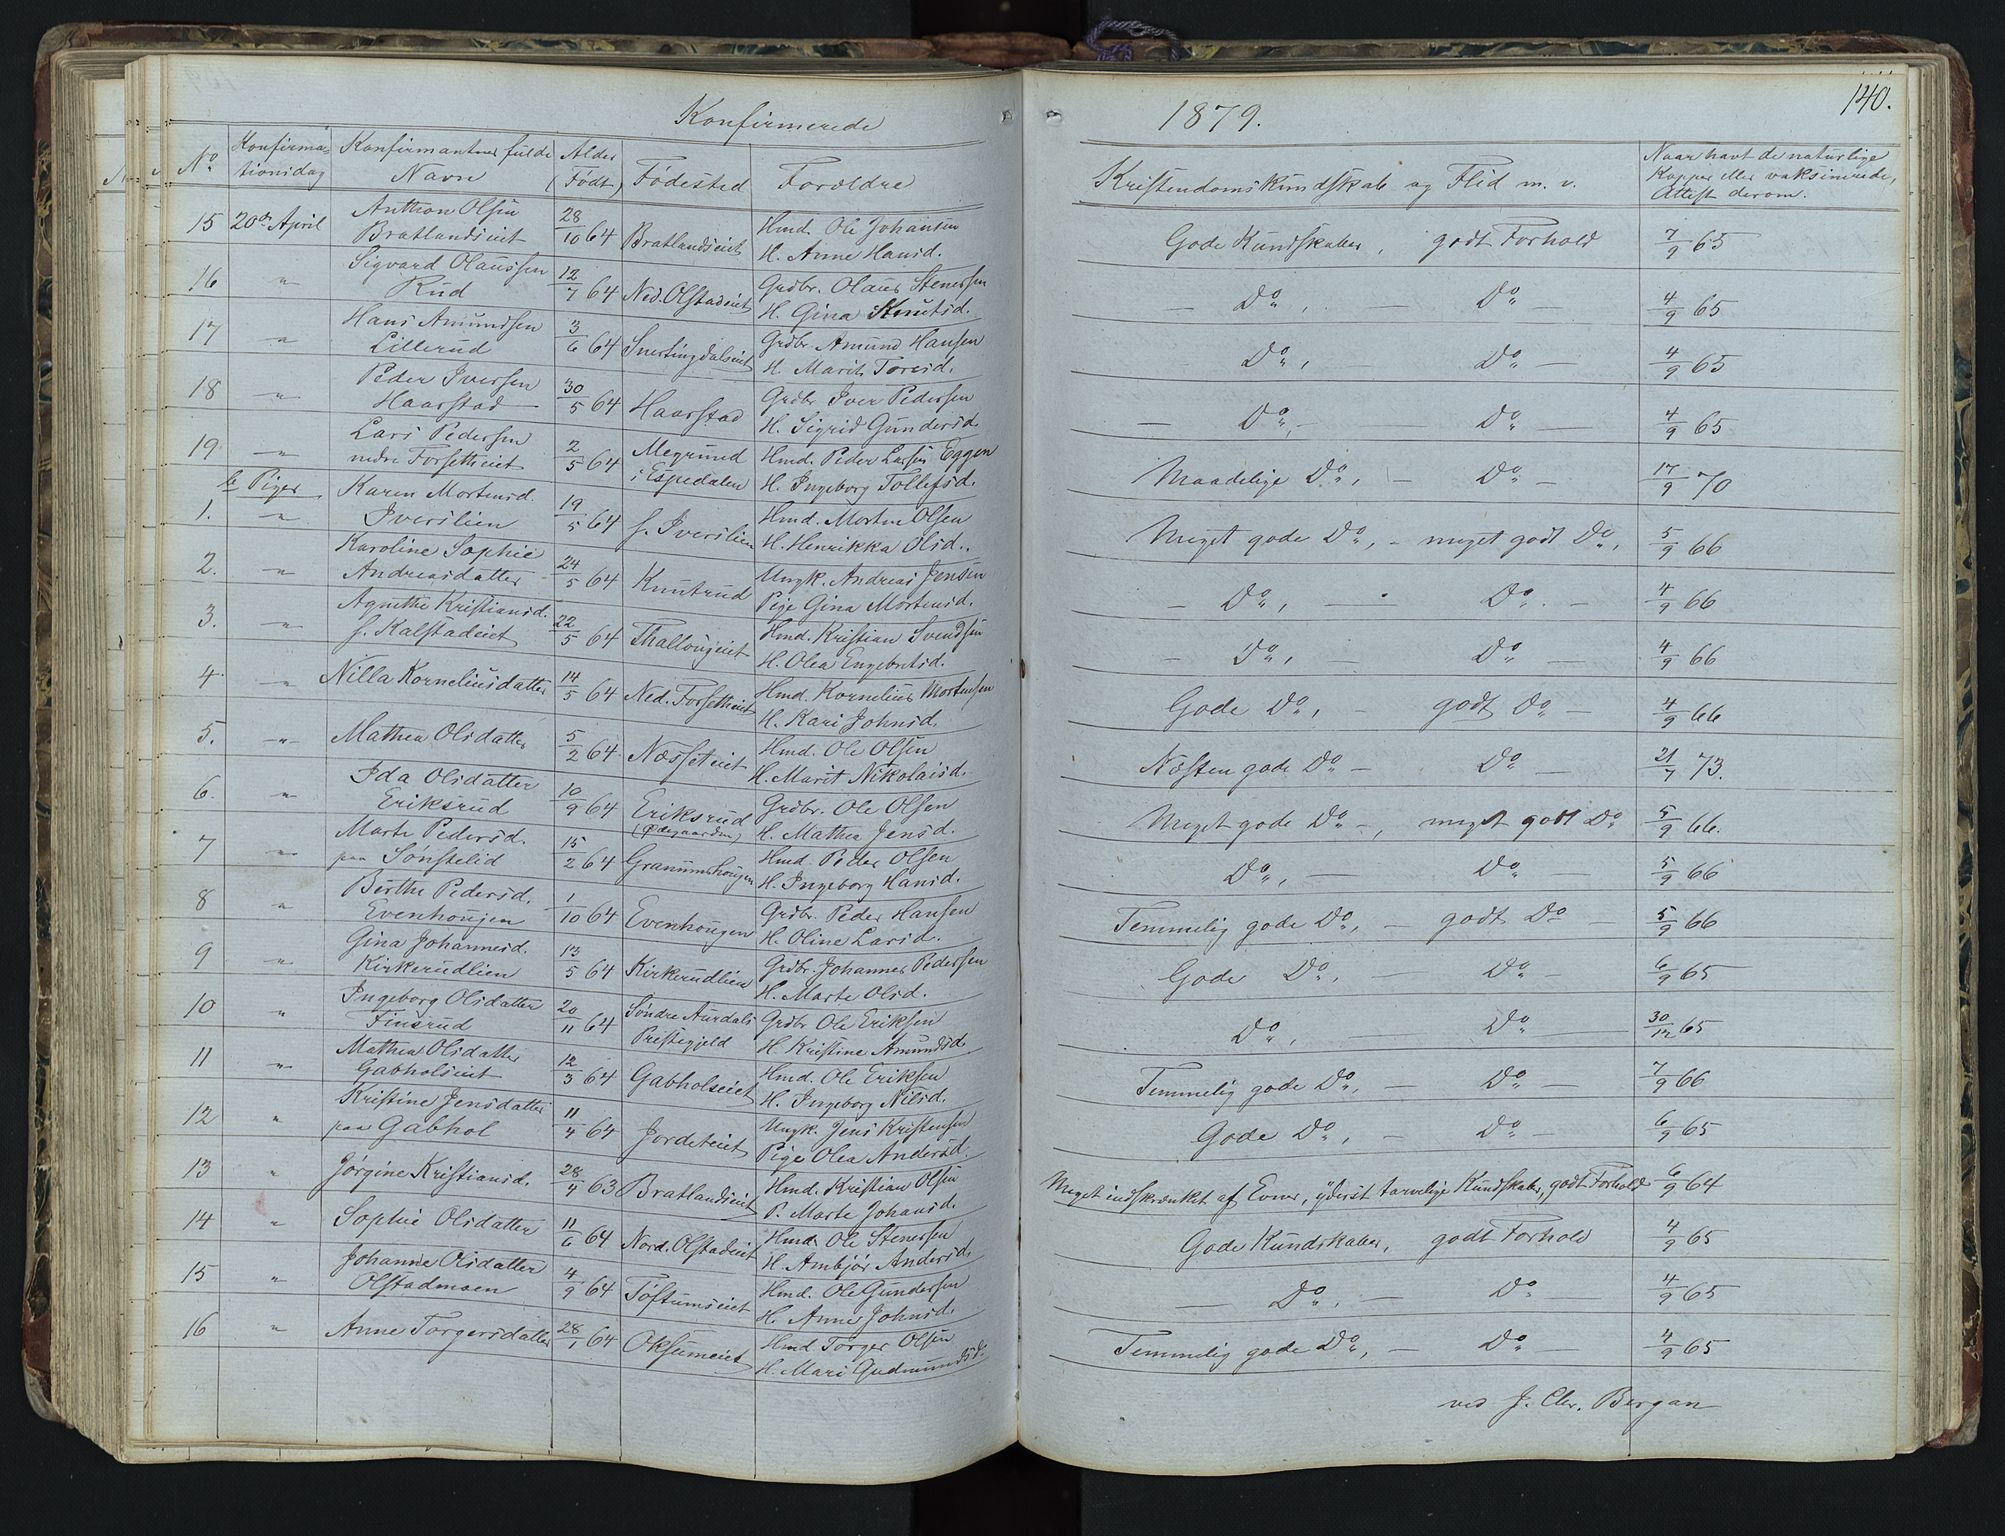 Konfirmerede
1879.
140.
No
Konfirma-
tionsdag
Konfirmantnes fulde
Navn
Alder
(Født)
Fødested
Forældre
Kristendomskundskab og Flid m. v.
Naar havt de naturlige
Kopper eller vaksinerede,
Attest derom.
15 20de April Anthon Olsen Bratlandseiet 28/10 64 Bratlandseiet Hmd. Ole Johansen H. Anne Hansd. Gode Kundskaber, godt Forhold 7/9 65
16 " Sigvard Olaussen Rud 12/7 64 Ned. Olstadeiet Grdbr. Olaus Stenersen H. Gina Knutsd. — Do, — Do — 4/9 65
17 " Hans Amundsen Lillerud 3/6 64 Snertingdalseiet Grdbr. Amund Hansen H. Marit Toresd. Do, Do — 4/9 65
18 " Peder Iversen Haarstad 30/5 64 Haarstad Grdbr Iver Pedersen H. Sigrid Gundersd. — Do, — Do — 4/9 65
19 " Lars Pedersen nedre Forsetheiet 2/5 64 Megrund i Espedalen Hmd. Peder Larsen Eggen H. Ingeborg Tollefsd. Maadelige Do, — Do — 17/9 70
b Piger
1. " Karen Mortensd. Iverslien 19/5 64 f. Iverslien Hmd. Morten Olsen H. Henrikka Olsd. Meget gode Do, — meget godt Do, 5/9 66
2. " Karoline Sophie Andreasdatter 24/5 64 Knutrud Ungk. Andreas Jensen Pige Gina Mortensd. — Do, — Do. — 4/9 66
3. " Agnethe Kristiansd. f. Kalstadeiet 22/5 64 Thallougeiet Hmd. Kristian Svendsen H. Olea Engebretsd. — Do, — Do — 4/9 66
4 " Nilla Korneliusdatter 14/5 64 Ned. Forsetheiet Hmd. Kornelius Mortensen H. Kari Johnsd. Gode Do, — godt Do — 4/9 66
5. " Mathea Olsdatter 5/2 64 Næsseteiet Hmd. Ole Olsen H. Marit Nikolaisd. Næsten gode Do — Do — 21/7 73.
6. " Ida Olsdatter Eriksrud 10/9 64 Eriksrud (Ødegaarden) Grdbr. Ole Olsen H. Mathea Jensd. Meget gode Do —, meget godt Do 5/9 66.
7 " Marte Pedersd. paa Sønstelid 15/2 64 Granumshougen Hmd. Peder Olsen H. Ingeborg Hansd. Do, — Do — 5/9 66
8 " Berthe Pedersd. Evenhougen 1/10 64 Evenhougen Grdbr. Peder Hansen H. Oline Larsd. Temmelig gode Do, — godt Do — 5/9 66
9 " Gina Johannesd. Kirkerudlien 13/5 64 Kirkerudlien Grdbr. Johannes Pedersen H. Marte Olsd. Gode Do, — Do — 6/9 65
10 " Ingeborg Olsdatter Finsrud 20/11 64 Søndre Aurdals Prestegjeld Grdbr Ole Eriksen H. Kristine Amundsd. Do, — Do — 30/12 65
11 " Mathea Olsdatter Gabholseiet 12/3 64 Gabholseiet Hmd. Ole Eriksen H. Ingeborg Nilsd. Temmelig gode Do, — Do — 7/9 66
12 " Kristine Jensdatter paa Gabhol 11/4 64 Jordeteiet Ungk. Jens Kristensen Pige Olea Andersd. Gode Do, — Do — 6/9 65
13 " Jørgine Kristiansd. 28/4 63 Bratlandseiet Hmd. Kristian Olsen P. Marte Johansd. Meget indskrænket af Evner, yderst tarvelige Kundskaber, godt Forhold 6/9 64
14 " Sophie Olsdatter 11/6 64 Nord. Olstadeiet Hmd. Ole Stenersen H. Ambjør Andersd. Gode Kundskaber, godt Forhold 4/9 65
15 " Johanne Olsdatter Olstadmoen 4/9 64 Toftumseiet Hmd. Ole Gundersen H. Anne Johnsd. — Do, — Do — 4/9 65
16 " Anne Torgersdatter 28/1 64 Oksumeiet Hmd Torger Olsen H. Mari Gudmundsd. Temmelig gode Do, — Do — 4/9 65
ved J. Chr. Bergan